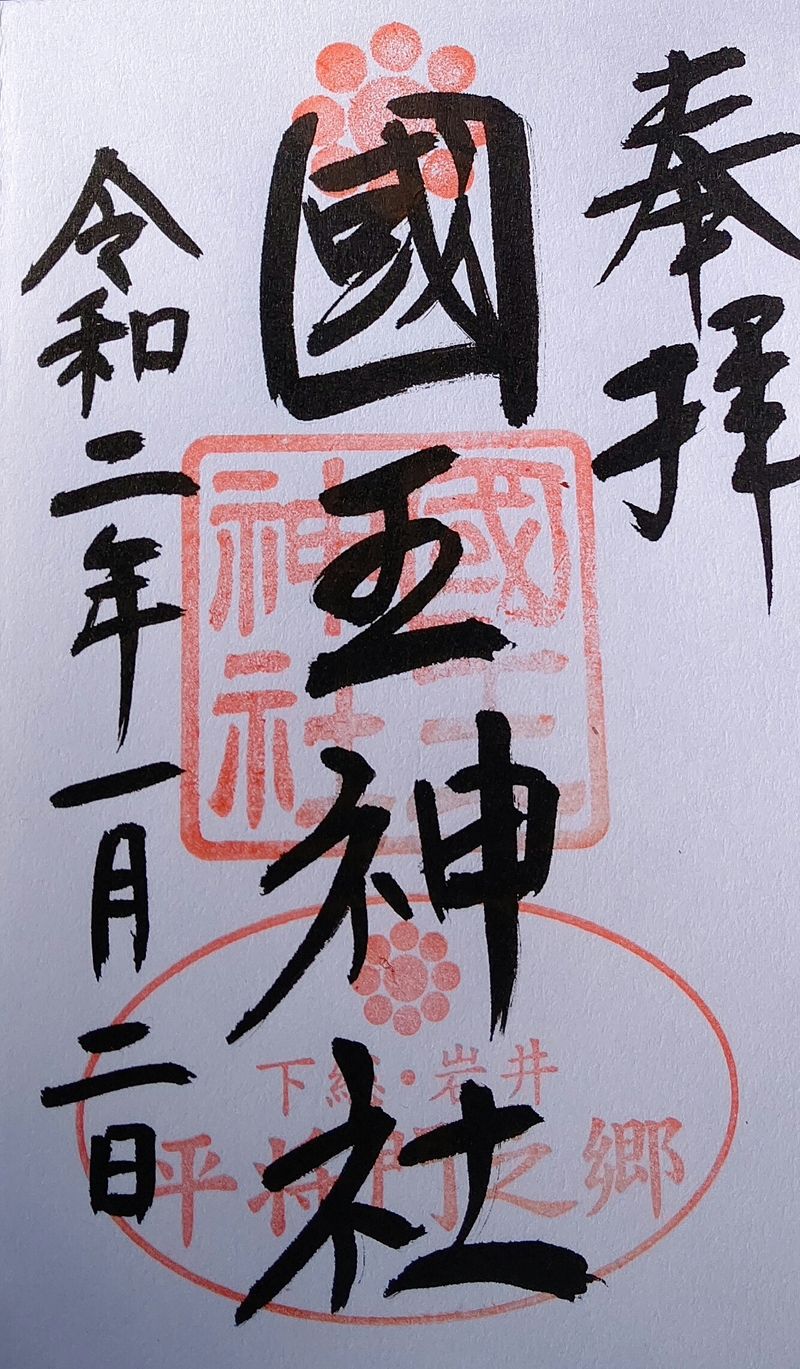 奉拝
國王神社
令和二年一月二日
國王
神社
下総・岩井
平将門之郷